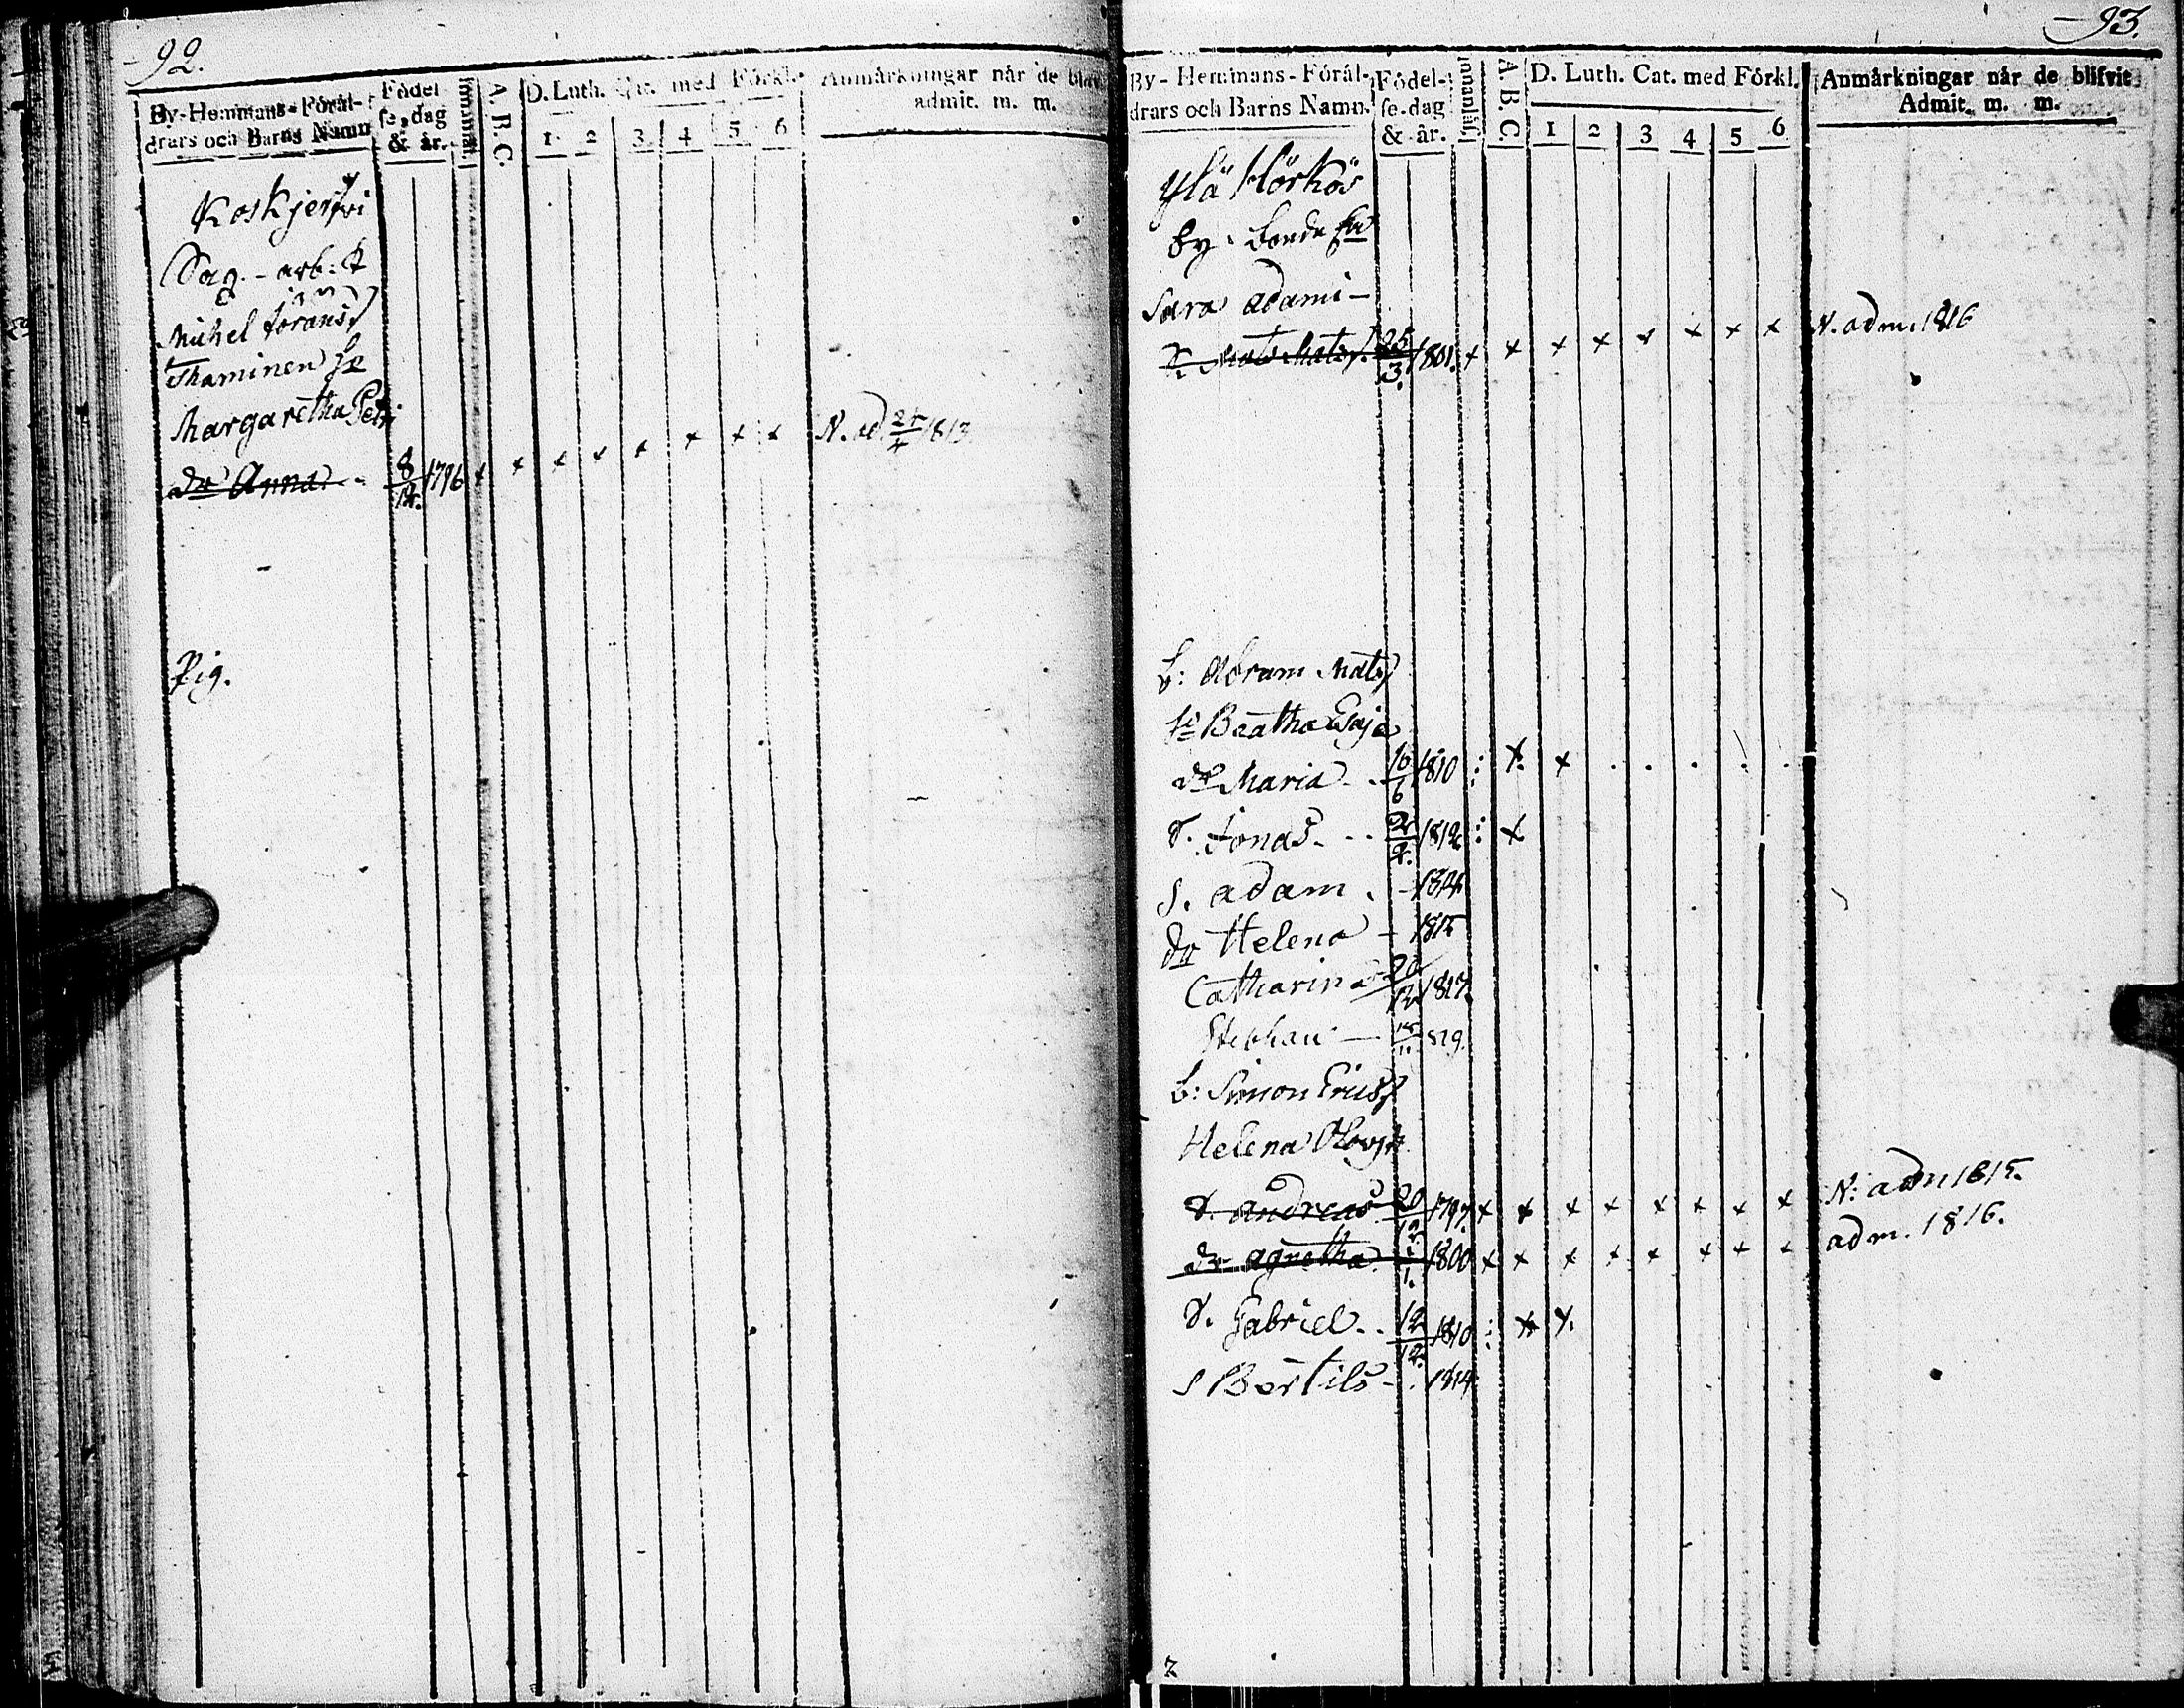 92.
By-Hemmans-Förål-
drars och Barns Namn
Födel
se,dag
& år.
A.B.C.
D. Luth. Cat. med Förkl.
1 2 3 4 5 6
Anmårkningar når de blifv
admit. m. m.
Koskjerfvi
Sag.-arb:
Michel Jöranss
Thaminen
Margaretha Petri
dr Anna 8/12. 1796 x x x x x x x x N. ad 1813
Pig.
93.
By-Hemmans-Förål-
drars och Barns Namn.
Födel-
se.dag
& år.
Innanläs.
A.B.C.
D. Luth. Cat. med Förkl.
1 2 3 4 5 6
Anmårkningar når de blifvit
Admit. m. m.
Ylä Hörkö
by. bonde
Sara Adami-
S. Mats Matss. 25/3. 1801. x x x x x x x x N. adm. 1816
b: Abram Mats
Beatha Esaja
dr Maria 16/6 1810 : x x . . . . .
S. Jonas. 1812 : x
S. Adam. - 1814
dr Helena - 1815
Catharina 20/12 1817.
Stephan - 819.
b: Simon Ericss
Helena
S. Andreas 20/12 1797. x x x x x x x x N: adm 1815.
dr Agnetha 1/1. 1800 x x x x x x x x adm. 1816.
S. Gabriel.. 12/12. 1810 : x x.
S Bertils - . 1814